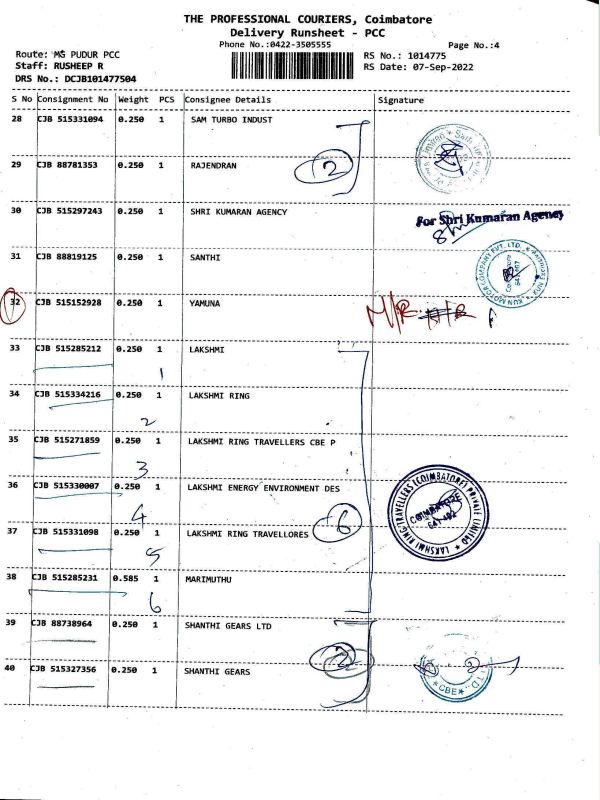 THE PROFESSIONAL COURIERS, Coimbatore
Delivery Runsheet - PCC
Phone No.:0422-3505555
Page No.:4
Route: MG PUDUR PCC
RS No.: 1014775
Staff: RUSHEEP R
RS Date: 07-Sep-2022
DRS No.: DCJB101477504
S No Consignment No Weight PCS Consignee Details Signature
28 CJB 515331094 0.250 1 SAM TURBO INDUST
29 CJB 88781353 0.250 1 RAJENDRAN 2
30 CJB 515297243 0.250 1 SHRI KUMARAN AGENCY For Shri Kumaran Agency
31 CJB 88819125 0.250 1 SANTHI
32 CJB 515152928 0.250 1 YAMUNA
33 CJB 515285212 0.250 1 LAKSHMI
1
34 CJB 515334216 0.250 1 LAKSHMI RING
2
35 CJB 515271859 0.250 1 LAKSHMI RING TRAVELLERS CBE P
3
36 CJB 515330007 0.250 1 LAKSHMI ENERGY ENVIRONMENT DES
4
LAKSHMI RING TRAVELLERS (COIMBATORE) PRIVATE LIMITED
COIMBATORE
641 402
37 CJB 515331098 0.250 1 LAKSHMI RING TRAVELLORES 6
5
38 CJB 515285231 0.585 1 MARIMUTHU
6
39 CJB 88738964 0.250 1 SHANTHI GEARS LTD
2
40 CJB 515327356 0.250 1 SHANTHI GEARS
CBE